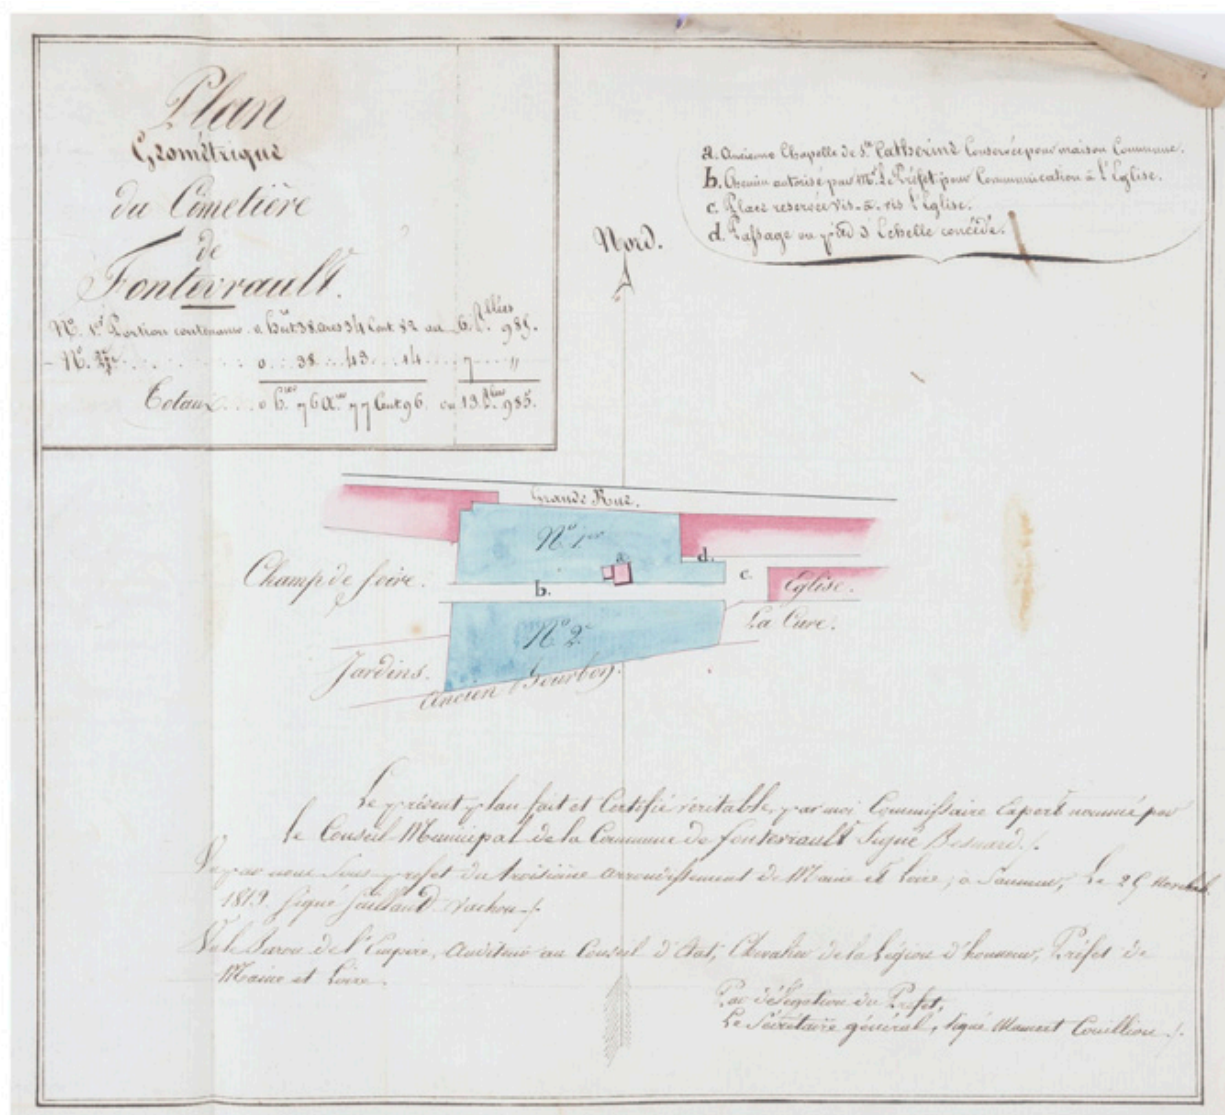 Plan
Géométrique
du Cimetière
de
Fontevrault.
N.º 1.er Portion contenance 0 hect 38 ares 34 Cent 82 ou 6 985.
N.º 2. 0 38 43 14 7 "
Totaux 0 h. 76 a. 77 Cent 96. ou 13 985.
a. Ancienne Chapelle de S.te Catherine Conservée pour maison Commune.
b. Chemin autorisé par M.r Le Préfet pour Communication à l'Eglise.
c. Place reservée vis-à-vis l'Eglise.
d. Passage ou pied d'Echelle concédé.
Nord.
Grande Rue.
N.º 1.er
a
d.
Champ de foire.
b.
c.
Eglise.
N.º 2.
La Cure.
Jardins.
Ancien Bourbon.
Le présent plan fait et Certifié véritable, par moi Commissaire Expert nommé par
le Conseil Municipal de la Commune de fontevrault Signé Besnard ./.
Vu par nous Sous-préfet du troisième arrondissement de Maine et Loire, à Saumur, Le 25
1813. Signé
Vu le Baron de l'Empire, Auditeur au Conseil d'Etat, Chevalier de la Légion d'honneur, Préfet de
Maine et Loire.
Par délégation du Préfet,
Le Sécrétaire général, signé Mamert Couillion ./.